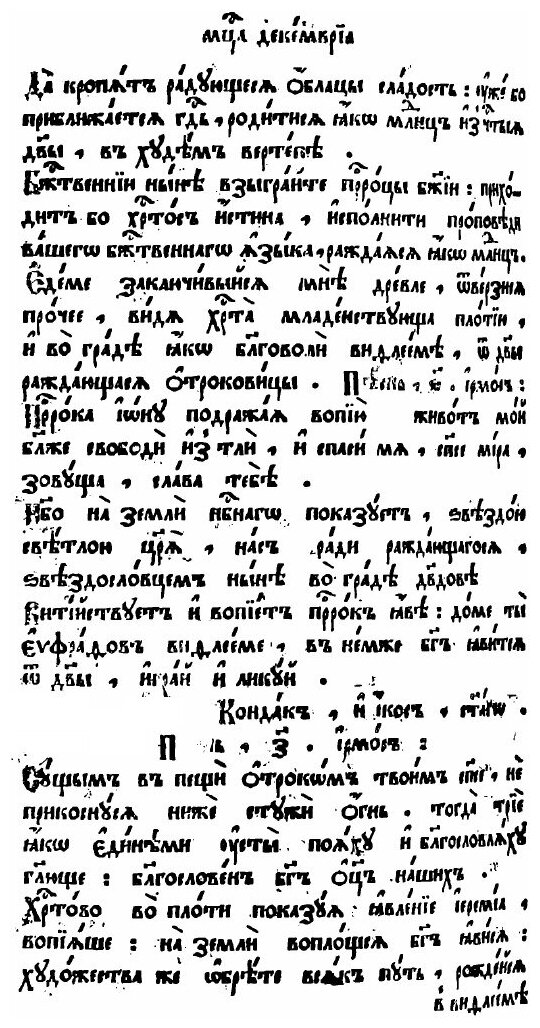 мц҃а декември́а
Да̀ кропѧ́тъ ра́дꙋющесѧ ѻ҆́блацы сла́дость : ᲂу҆же́ бо
приближа́етсѧ гдⷭ҇ь , роди́тисѧ ꙗ҆́кѡ млⷣнцъ и҆з̾ чⷭ҇тыѧ
дв҃ы , въ хꙋдѣ́мъ верте́пѣ .
Бжⷭ҇твеннїи ны́нѣ взыгра́йте прⷪ҇ро́цы бж҃їи : прихо́-
дитъ бо хрⷭ҇то́съ и҆́стина , и҆спо́лнити про́повѣди
ва́шегѡ бжⷭ҇твеннагѡ ѧ҆зы́ка , ражда́ѧсѧ ꙗ҆́кѡ млⷣнцъ .
Є҆де́ме заключи́выйсѧ мнѣ̀ дре́вле , ѿве́рзисѧ
про́чее , ви́дѧ хрⷭ҇та̀ младе́нствꙋюща пло́тїи ,
и҆ во̀ гра́дѣ ꙗ҆́кѡ бл҃говолѝ виѳлее́мѣ , ѿ дв҃ы
ражда́ющаѧсѧ ѻ҆трокови́цы . Пѣ́снь , ѕ҃ . і҆рмо́съ :
Прⷪ҇ро́ка і҆ѡ́нꙋ подража́ѧ вопїю̀ живо́тъ мо́й
бл҃же свободѝ и҆з̾ тлѝ , и҆ спаси́ мѧ , сп҃се ми́ра ,
зовꙋ́ща , сла́ва тебѣ̀ .
Нб҃о на̀ землѝ нбⷭ҇нагѡ показꙋ́етъ , ѕвѣздо́ю
свѣ́тлою цр҃ѧ̀ , на́съ ра́ди ражда́ющагосѧ ,
ѕвѣздосло́вцемъ ны́нѣ во̀ гра́дѣ дв҃довѣ
Вити́йствꙋетъ и҆ вопїе́тъ прⷪ҇ро́къ ꙗ҆́вѣ : до́ме ты̀
є҆ѵфра́довъ виѳлее́ме , въ не́мже бг҃ъ ꙗ҆ви́тсѧ
ѿ дв҃ы , и҆гра́й и҆ ликꙋ́й .
Конда́къ , и҆ і҆́косъ , ст҃а́гѡ .
П ь , з҃ . і҆рмо́съ :
Сꙋ́щымъ въ пещѝ ѻ҆́трокѡмъ твои́мъ сп҃се , нѐ
прикоснꙋ́сѧ нижѐ стꙋжѝ ѻ҆́гнь . тогда̀ трїѐ
ꙗ҆́кѡ є҆ди́нѣми ᲂу҆сты̀ поѧ́хꙋ и҆ бл҃гословлѧ́хꙋ
гл҃юще : бл҃гослове́нъ бг҃ъ ѻ҆ц҃ъ на́шихъ .
Хрⷭ҇то́во во̀ пло́ти показꙋ́ѧ ꙗ҆вле́нїе і҆еремі́а ,
вопїѧ́ше : на̀ землѝ вопло́щсѧ бг҃ъ ꙗ҆ви́сѧ :
хꙋдо́жества же ѡ҆брѣ́те всѧ́къ пꙋ́ть , рожде́йсѧ
в̾ виѳлее́мѣ